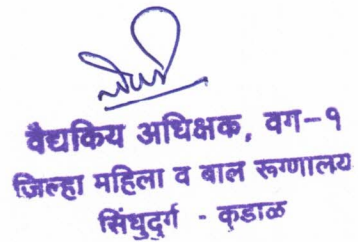 वैद्यकिय अधिक्षक, वग-१
जिल्हा महिला व बाल रूग्णालय
सिंधुदुर्ग - कुडाळ